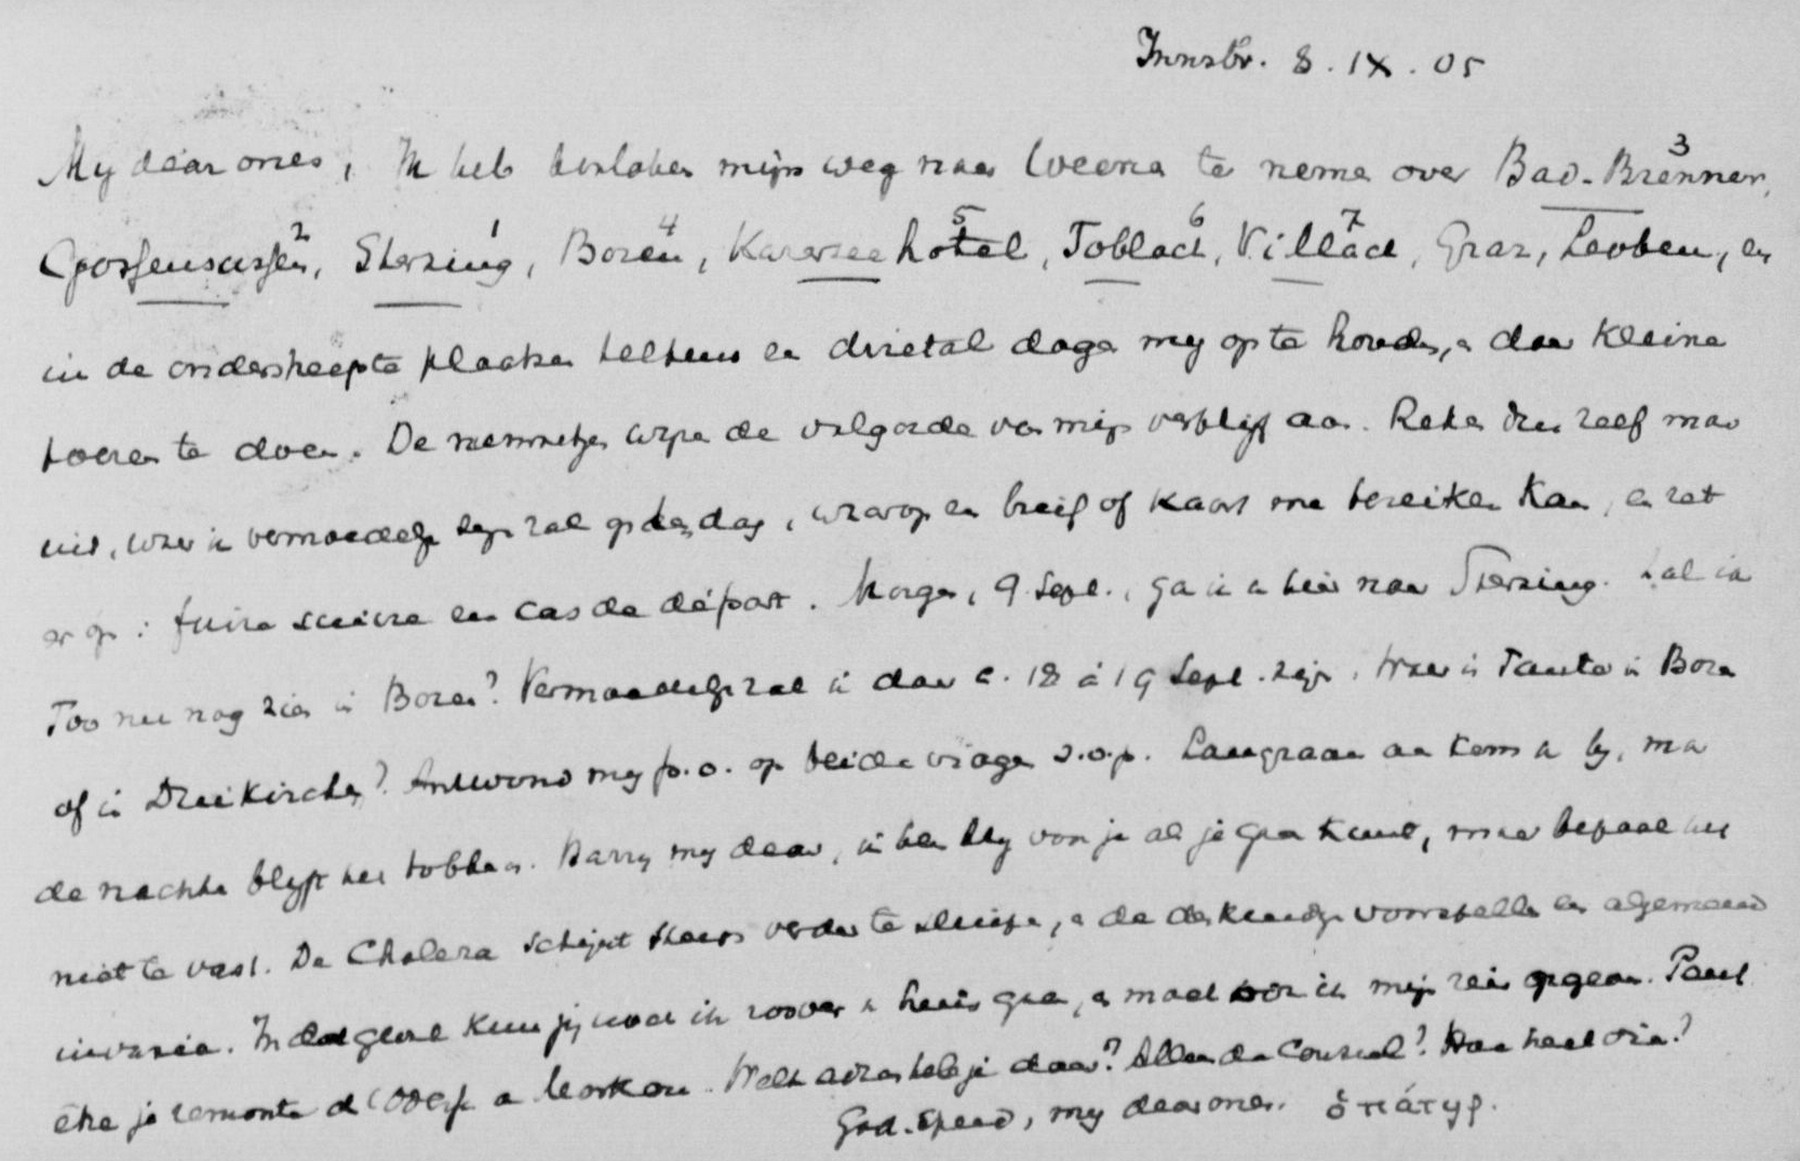 Innsbr. 8. IX. 05
My dear ones, Ik heb besloten mijn weg naar Weenen te nemen over Bad-Brenner 3,
Gossensassen 2, Sterzing 1, Bozen 4, Karerseehotel 5, Toblach 6, Villach 7, Graz, Leoben, en
in de onderstreepte plaatsen telkens een drietal dagen my op te houden, en daar kleine
toeren te doen. De nummertjes wijzen de volgorde van mijn verblijf aan. Reken dus zelf maar
uit, waar ik vermoedelijk zijn zal op den dag, waarop een brief of kaart me bereiken kan, en zet
er op: faire suivre en cas de départ. Morgen, 9 Sept., ga ik van hier naar Sterzing. Zal ik
Too nu nog zien in Bozen? Vermoedelijk zal ik daar c. 18 à 19 Sept. zijn. Waar is Tante in Bozen
of in Dreikirchen? Antwoord my p.o. op beide vragen s.v.p. Langzaam aan kom ik by, maar
de nachten blyft het tobben. Harry my dear, ik ben bly voor je als je gaan kunt, maar bepaal het
niet te vast. De Cholera schijnt steeds verder te sluipen, en de deskundigen voorspellen een algemeene
invasie. In dat geval kun jij noch ik zoover van huis gaan, en moet ook ik mijn reis opgeven. Paul
être je remonte d'Odessa a Moskou. Welk adres heb je daar? Alleen de Consul? Hoe heet die?
God-speed, my dear ones. ὁ πάτηρ.